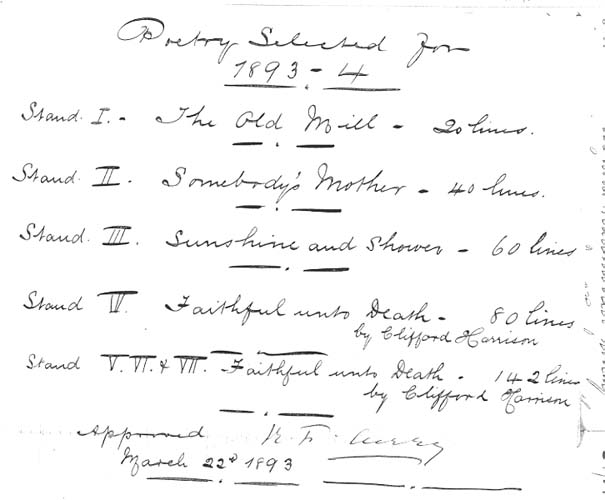 Poetry Selected for
1893-4
Stand. I. - The Old Mill - 20 lines.
Stand. II. Somebody's Mother - 40 lines.
Stand. III. Sunshine and Shower - 60 lines
Stand IV. Faithful unto Death - 80 lines
by Clifford Harrison
Stand V. VI. & VII. Faithful unto Death - 142 lines
by Clifford Harrison
Approved
March 22d 1893